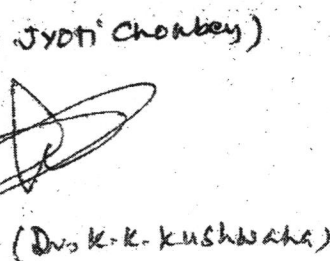 Jyoti Choubey)
(Dr. K.K. Kushwaha)